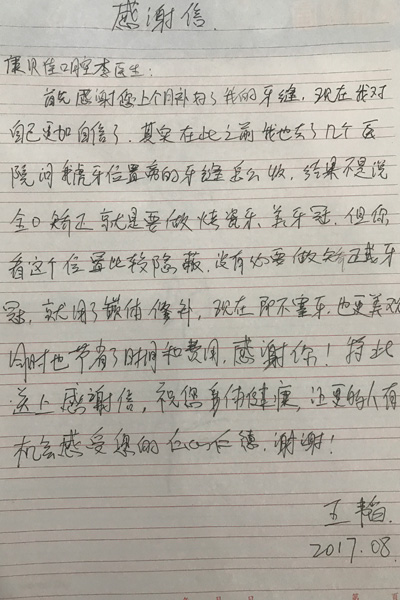 感谢信.
康贝佳口腔李医生:
首先感谢您上个月补好了我的牙缝,现在我对
自己更加自信了.其实在此之前我也去了几个医
院问我虎牙位置旁的牙缝怎么收,结果不是说
全口矫正就是要做烤瓷牙、美牙冠.但你
看这个位置比较隐蔽.没有必要做矫正或牙
冠,就用了嵌体修补,现在即不塞牙,也更美观
同时也节省了时间和费用,感谢你!特此
送上感谢信,祝您身体健康,让更多的人有
机会感受您的仁心仁德.谢谢!
王韬.
2017.08.